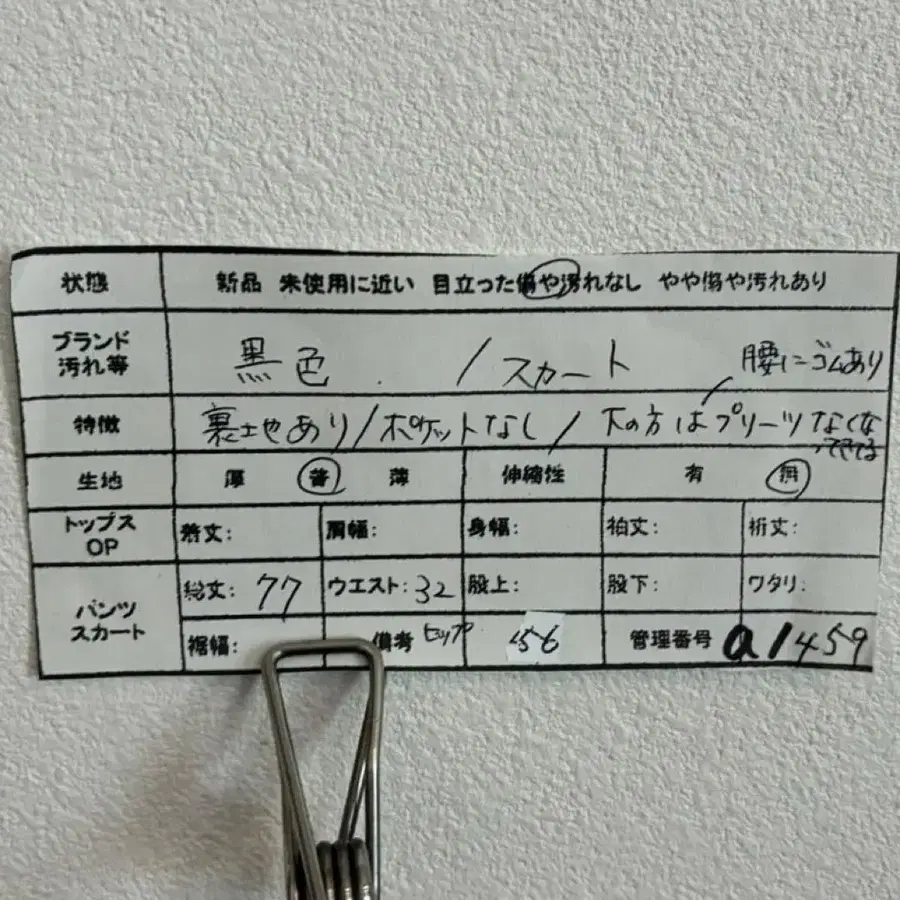 状態 新品 未使用に近い 目立った傷や汚れなし やや傷や汚れあり
ブランド 汚れ等 黒色 / スカート 腰にゴムあり
特徴 裏地あり / ポケットなし / 下の方はプリーツなくなってきてる
生地 厚 普 薄 伸縮性 有 無
トップス OP 着丈: 肩幅: 身幅: 袖丈: 裄丈:
パンツ スカート 総丈: 77 ウエスト: 32 股上: 股下: ワタリ:
裾幅: 備考 ヒップ 56 管理番号 a1459